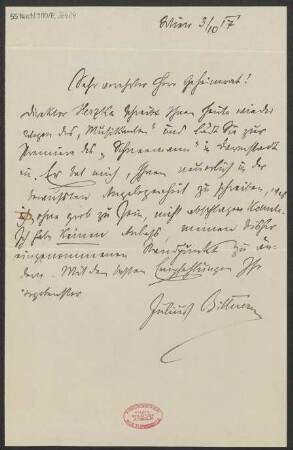 55 Nachl 100/B,
Wien 3/10 17
Sehr verehrter Herr Geheimrat!
Direktor Hertzka schreibt Ihnen heute wieder
wegen des "Musikanten" und lädt Sie zur
Premiere des "Schneemann" in Darmstadt
ein. Er bat mich, Ihnen neuerlich in der
bewußten Angelegenheit zu schreiben, was
ich, ohne grob zu sein, nicht abschlagen konnte.
Ich habe keinen Anlaß, meinen bisher
eingenommenen Standpunkt zu än-
dern. Mit den besten Empfehlungen Ihr
ergebenster
Julius Bittner